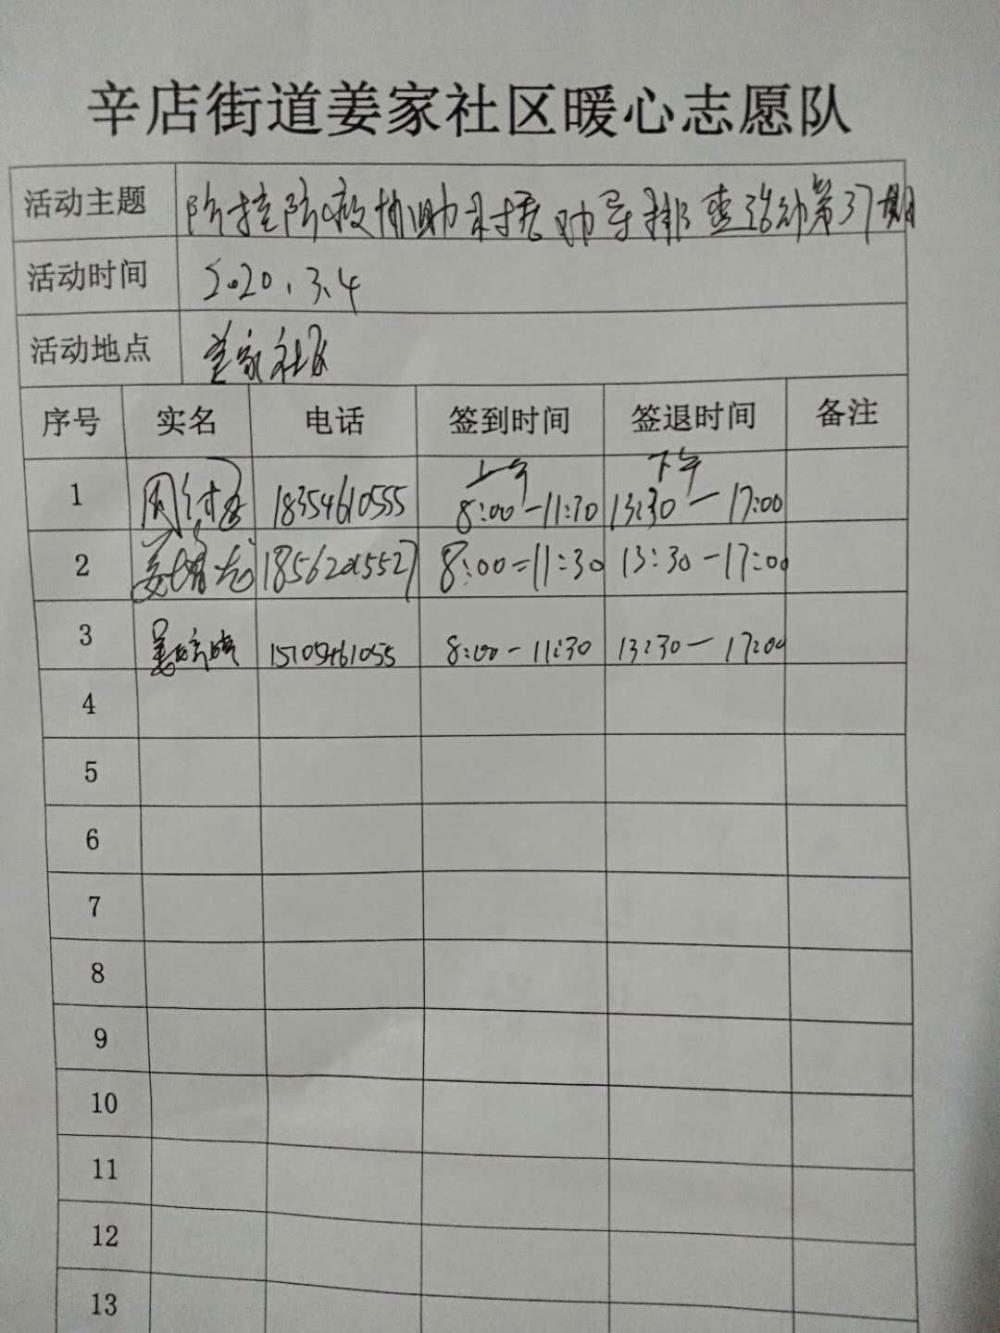 辛店街道姜家社区暖心志愿队
活动主题 防控防疫协助 排查活动第37期
活动时间 2020.3.4
活动地点 姜家社区
序号 实名 电话 签到时间 签退时间 备注
上午 下午
1 18354610555 8:00-11:30 13:30-17:00
2 姜 18562015527 8:00-11:30 13:30-17:00
3 姜 晓 15105461055 8:00-11:30 13:30-17:00
4
5
6
7
8
9
10
11
12
13